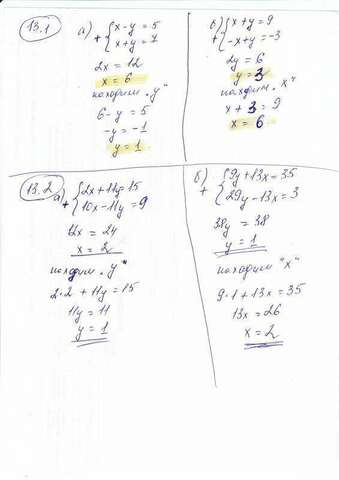 13.1
а) + { x - y = 5
x + y = 7
2x = 12
x = 6
находим „y"
6 - y = 5
-y = -1
y = 1
б) + { x + y = 9
-x + y = -3
2y = 6
y = 3
находим „x"
x + 3 = 9
x = 6
13.2
а) + { 2x + 11y = 15
10x - 11y = 9
12x = 24
x = 2
находим „y"
2·2 + 11y = 15
11y = 11
y = 1
б) + { 9y + 13x = 35
29y - 13x = 3
38y = 38
y = 1
находим "x"
9·1 + 13x = 35
13x = 26
x = 2